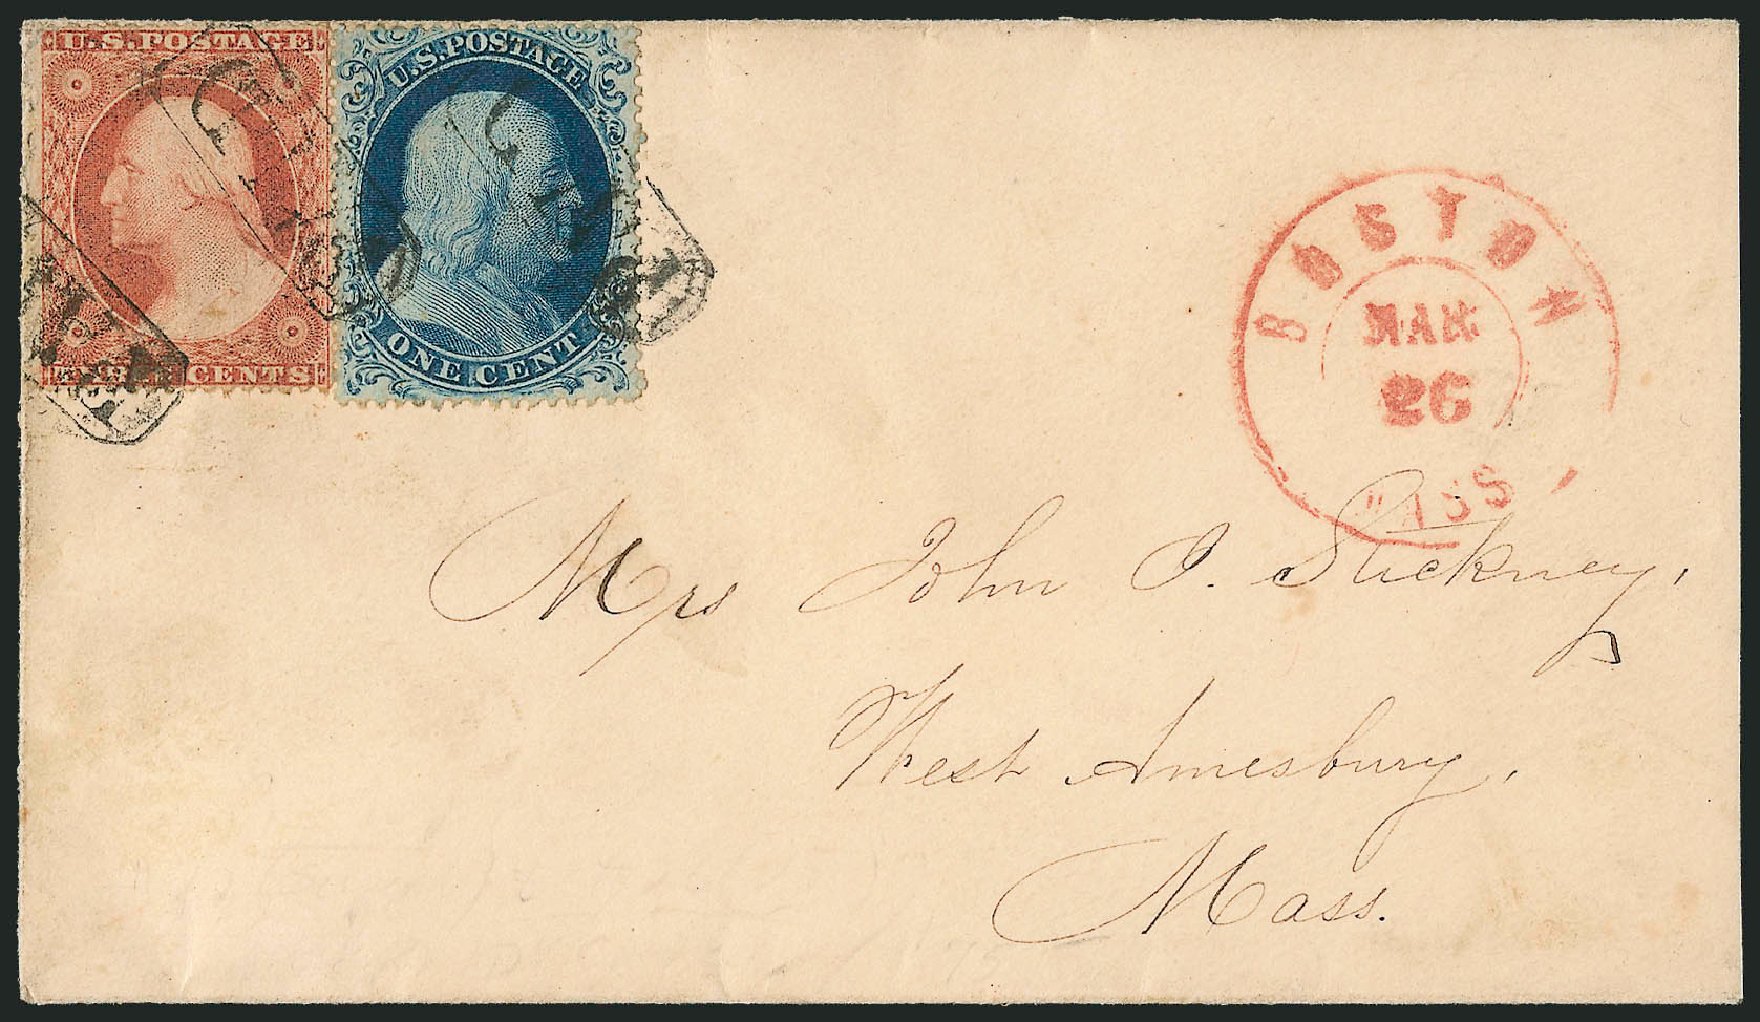 U.S. POSTAGE
THREE CENTS
U.S. POSTAGE
ONE CENT
PAID
BOSTON
MAR
26
MASS
Mrs John O. Stickney,
West Amesbury,
Mass.